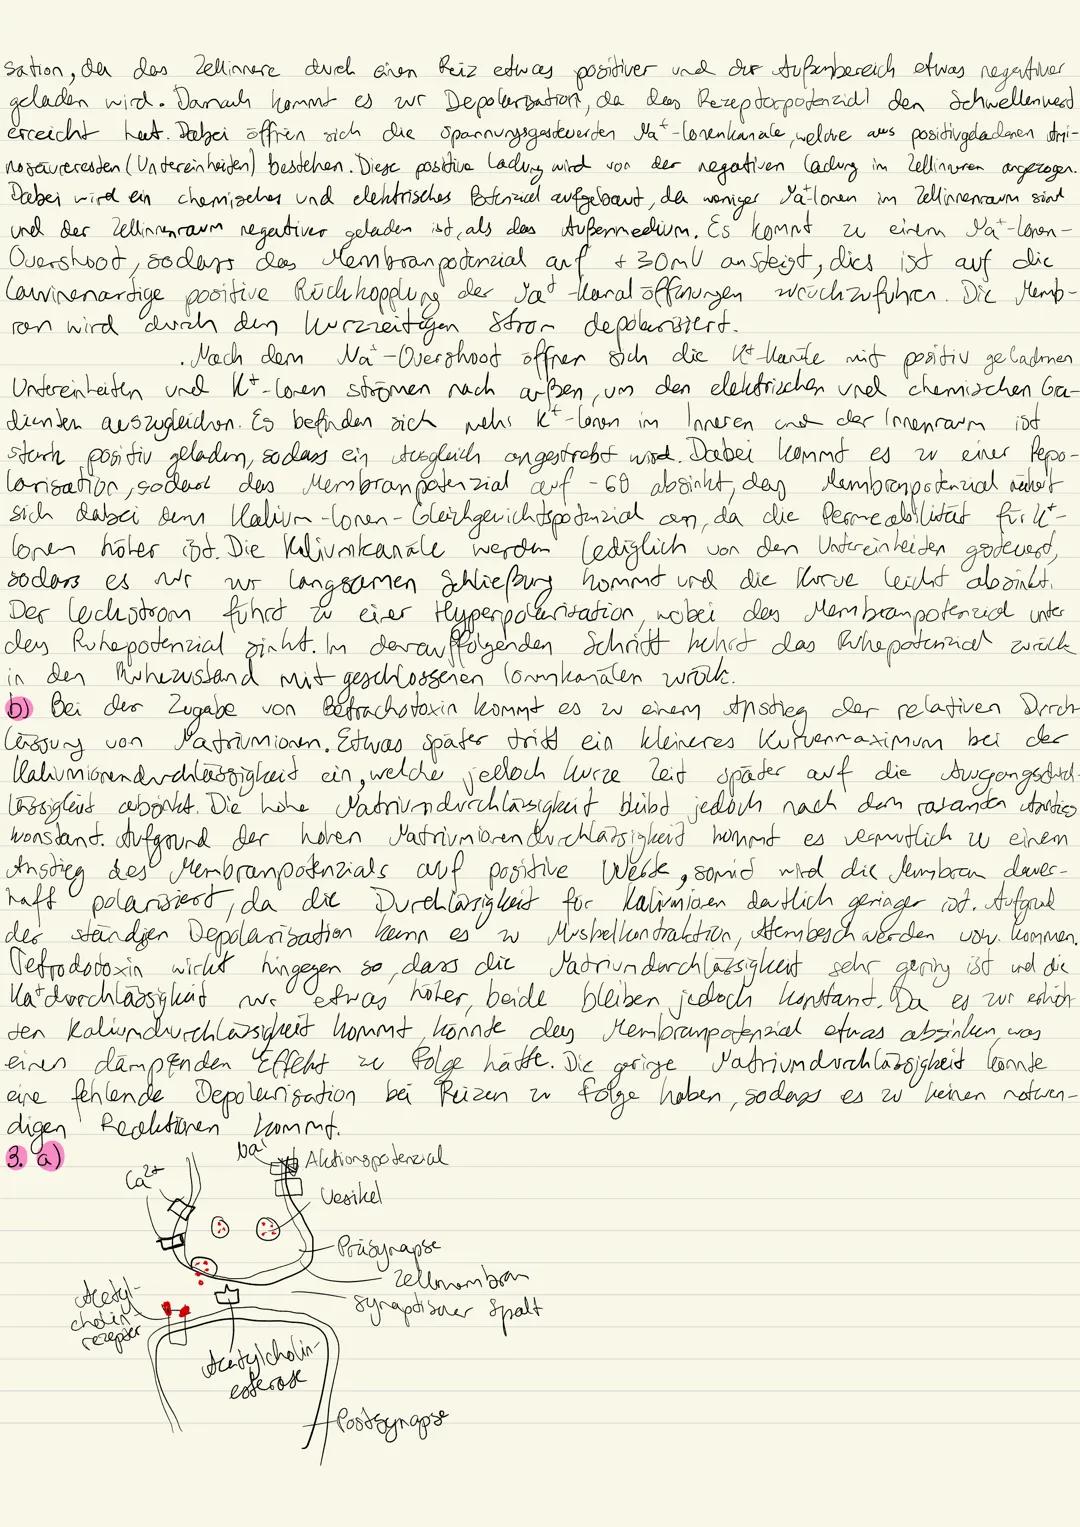 sation, da das Zellinnere durch einen Reiz etwas positiver und der Außenbereich etwas negativer
geladen wird. Danach kommt es zur Depolarisation, da das Rezeptorpotenzial den Schwellenwert
erreicht hat. Dabei öffnen sich die spannungsgesteuerten Na⁺-Ionenkanäle, welche aus positivgeladenen Ami-
nosäureresten (Untereinheiten) bestehen. Diese positive Ladung wird von der negativen Ladung im Zellinneren angezogen.
Dabei wird ein chemisches und elektrisches Potenzial aufgebaut, da weniger Na⁺-Ionen im Zellinnenraum sind
und der Zellinnenraum negativer geladen ist, als das Außenmedium. Es kommt zu einem Na⁺-Ionen-
Overshoot, sodass das Membranpotenzial auf +30mV ansteigt, dies ist auf die
lawinenartige positive Rückkopplung der Na⁺-Kanalöffnungen zurückzuführen. Die Memb-
ran wird durch den kurzzeitigen Strom depolarisiert.
. Nach dem Na⁺-Overshoot öffnen sich die K⁺-Kanäle mit positiv geladenen
Untereinheiten und K⁺-Ionen strömen nach außen, um den elektrischen und chemischen Gra-
dienten auszugleichen. Es befinden sich mehr K⁺-Ionen im Inneren und der Innenraum ist
stark positiv geladen, sodass ein Ausgleich angestrebt wird. Dabei kommt es zu einer Repo-
larisation, sodass das Membranpotenzial auf -60 absinkt, das Membranpotenzial nähert
sich dabei dem Kalium-Ionen-Gleichgewichtspotenzial an, da die Permeabilität für K⁺-
Ionen höher ist. Die Kaliumkanäle werden lediglich von den Untereinheiten gesteuert,
sodass es nur zur langsamen Schließung kommt und die Kurve leicht absinkt.
Der Leckstrom führt zu einer Hyperpolarisation, wobei das Membranpotenzial unter
das Ruhepotenzial sinkt. Im darauffolgenden Schritt kehrt das Ruhepotenzial zurück
in den Ruhezustand mit geschlossenen Ionenkanälen zurück.
b) Bei der Zugabe von Betrachotoxin kommt es zu einem Anstieg der relativen Durch
lässung von Natriumionen. Etwas später tritt ein kleineres Kurvenmaximum bei der
Kaliumionendurchlässigkeit ein, welche jedoch kurze Zeit später auf die Ausgangsdurch-
lässigkeit absinkt. Die hohe Natriumdurchlässigkeit bleibt jedoch nach dem rasanten Anstieg
konstant. Aufgrund der hohen Natriumionendurchlässigkeit kommt es vermutlich zu einem
Anstieg des Membranpotenzials auf positive Werte, somit wird die Membran dauer-
haft polarisiert, da die Durchlässigkeit für Kaliumionen deutlich geringer ist. Aufgrund
der ständigen Depolarisation kann es zu Muskelkontraktion, Atembeschwerden usw. kommen.
Tetrodotoxin wirkt hingegen so, dass die Natriumdurchlässigkeit sehr gering ist und die
Ka⁺durchlässigkeit nur etwas höher, beide bleiben jedoch konstant. Da es zur erhöh
ten Kaliumdurchlässigkeit kommt, könnte das Membranpotenzial etwas absinken, was
einen dämpfenden Effekt zu Folge hätte. Die geringe Natriumdurchlässigkeit könnte
eine fehlende Depolarisation bei Reizen zu Folge haben, sodass es zu keinen notwen-
digen Reaktionen kommt.
3. a)
Na⁺
Ca²⁺
Aktionspotenzial
Vesikel
Präsynapse
Zellmembran
synaptischer Spalt
Acetyl-
cholin-
rezeptor
Acetylcholin-
esterase
Postsynapse